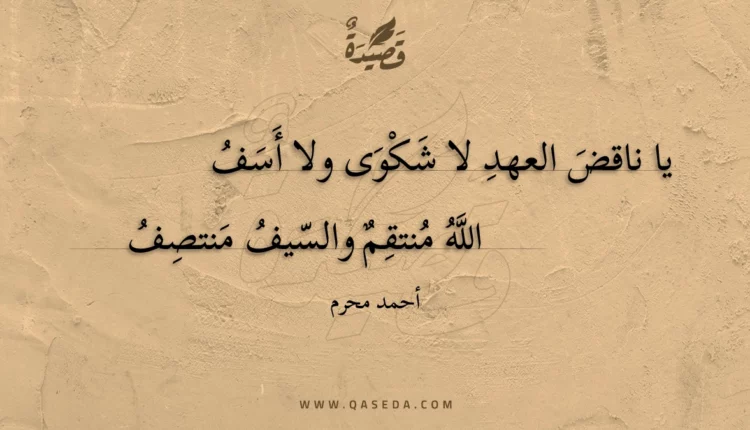 قَصِيْدَةٌ
يا ناقضَ العهدِ لا شَكْوَى ولا أَسَفُ
اللَّهُ مُنتقِمٌ والسّيفُ مَنتصِفُ
أحمد محرم
WWW.QASEDA.COM